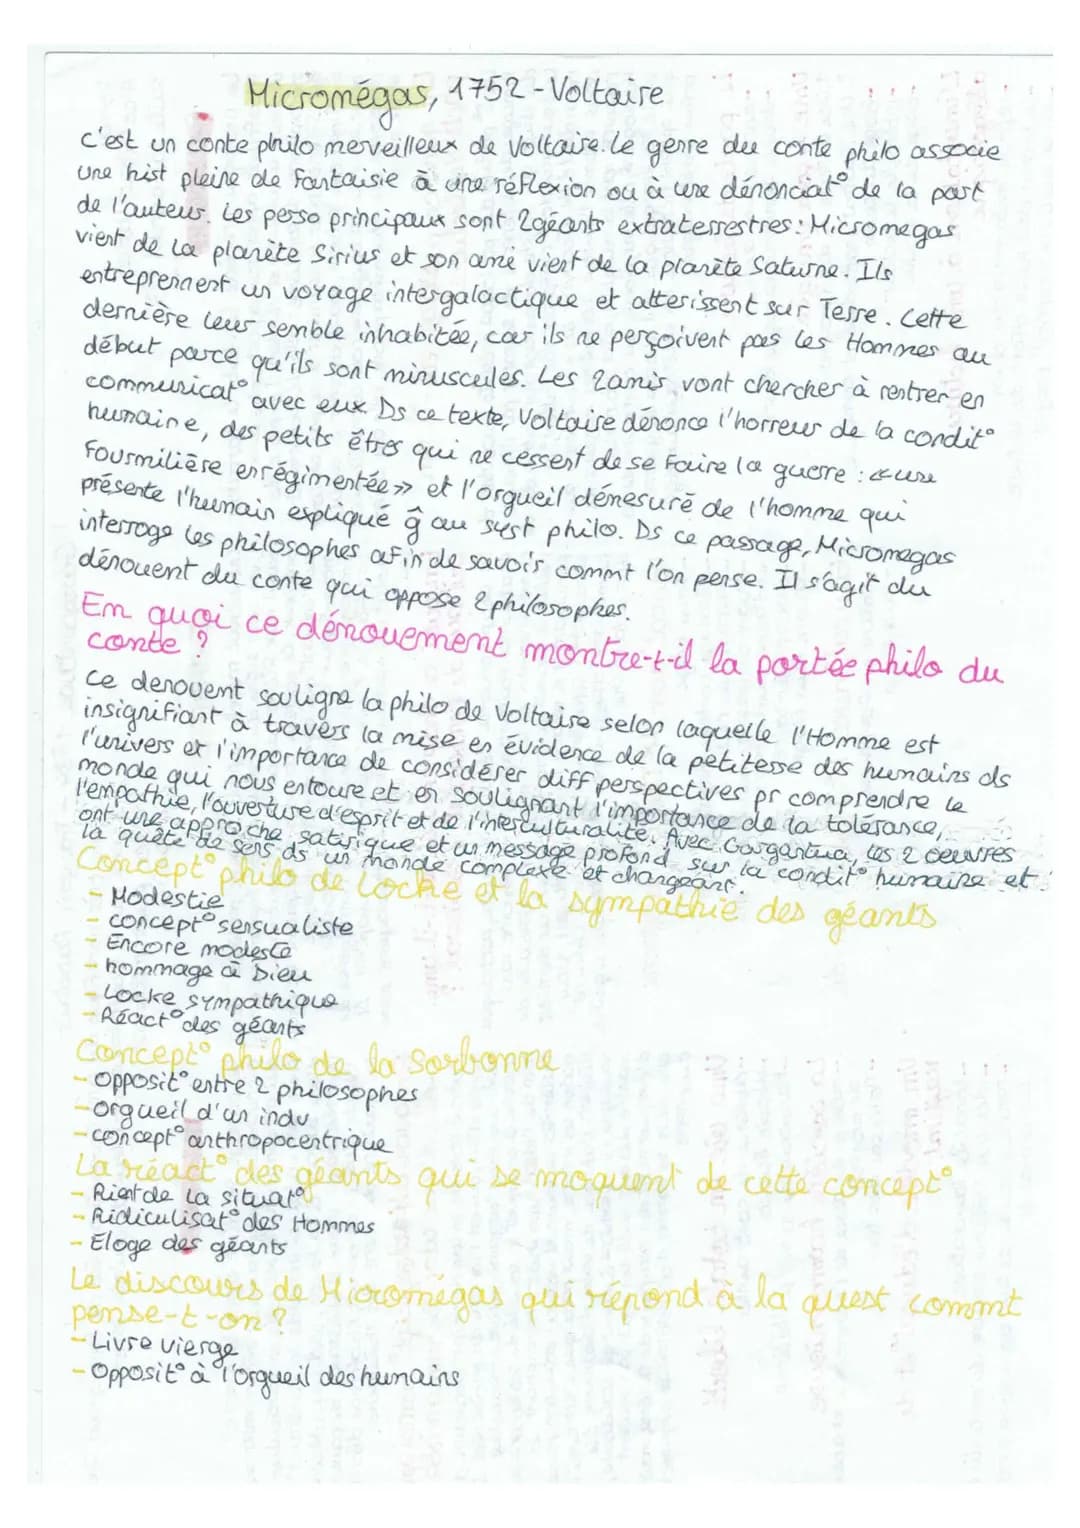 Micromégas, 1752 - Voltaire
C'est un conte philo merveilleux de Voltaire. Le genre du conte philo associe
une hist pleine de fantaisie à une réflexion ou à une dénonciat° de la part
de l'auteur. Les perso principaux sont 2géants extraterrestres: Micromegas
vient de la planète Sirius et son ami vient de la planète Saturne. Ils
entreprennent un voyage intergalactique et atterissent sur Terre. Cette
dernière leur semble inhabitée, car ils ne perçoivent pas les Hommes au
début parce qu'ils sont minuscules. Les 2amis vont chercher à rentrer en
communicat° avec eux. Ds ce texte, Voltaire dénonce l'horreur de la condit°
humaine, des petits êtres qui ne cessent de se faire la guerre : « une
fourmilière enrégimentée » et l'orgueil démesuré de l'homme qui
présente l'humain expliqué ĝ au syst philo. Ds ce passage, Micromegas
interroge les philosophes afin de savoir commt l'on pense. Il s'agit du
dénouent du conte qui oppose 2 philosophes.
En quoi ce dénouement montre-t-il la portée philo du
conte ?
Ce denouent souligne la philo de Voltaire selon laquelle l'Homme est
insignifiant à travers la mise en évidence de la petitesse des humains ds
l'univers et l'importance de considérer diff perspectives pr comprendre le
monde qui nous entoure et en soulignant l'importance de la tolérance,
l'empathie, l'ouverture d'esprit et de l'interculturalité. Avec Gargantua, les 2 oeuvres
ont une approche satirique et un message profond sur la condit° humaine et
la quête de sens ds un monde complexe et changeant.
Concept° philo de Locke et la sympathie des géants
- Modestie
- concept° sensualiste
- Encore modeste
- hommage à Dieu
- Locke sympathique
- Réact° des géants
Concept° philo de la Sorbonne
- Opposit° entre 2 philosophes
- orgueil d'un indv
- concept° anthropocentrique
La réact° des géants qui se moquent de cette concept°
- Rient de la situat°
- Ridiculisat° des Hommes
- Éloge des géants
Le discours de Micromégas qui répond à la quest commt
pense-t-on ?
- Livre vierge
- Opposit° à l'orgueil des humains